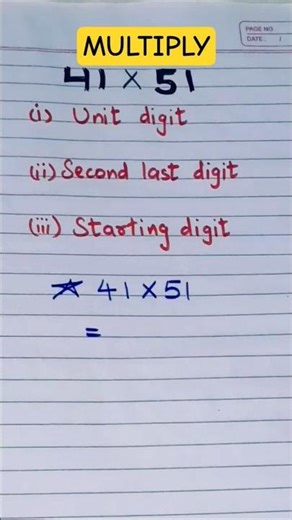 PAGE NO.
DATE: /
MULTIPLY
41 × 51
(i) Unit digit
(ii) Second last digit
(iii) Starting digit
☆ 41 × 51
=